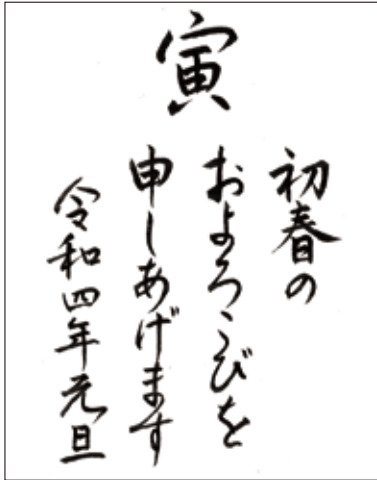 寅
初春の
およろこびを
申しあげます
令和四年元旦